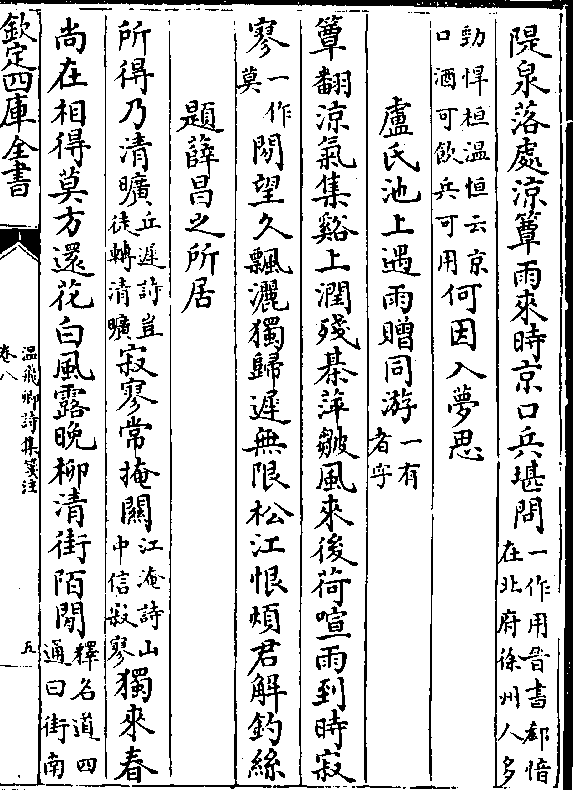 隄泉落處涼簟雨來時京口兵堪問一作用晉書郗愔在北府徐州人多
勁悍桓温恒云京口酒可飲兵可用何因入夢思
盧氏池上遇雨贈同游一有者字
簟翻涼氣集谿上潤殘棊萍皺風來後荷喧雨到時寂
寥一作莫閒望久飄灑獨歸遲無限松江恨煩君解釣絲
題薛昌之所居
所得乃清曠丘遲詩豈徒轉清曠寂寥常掩關江淹詩山中信寂寥獨來春
尚在相得莫方還花白風露晚柳清街陌閒釋名道四通曰街南
欽定四庫全書
温飛卿詩集箋注
卷八
五